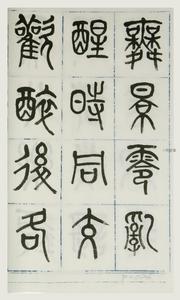 舞景零亂
醒時同交
歡醉後各